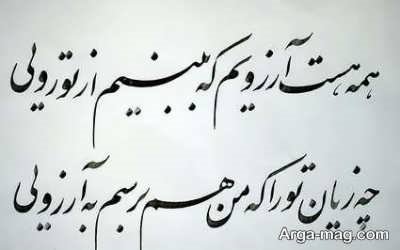 همه هست آرزویم که ببینم از تو رویی
چه زیان تو را که من هم برسم به آرزویی
Arga-mag.com